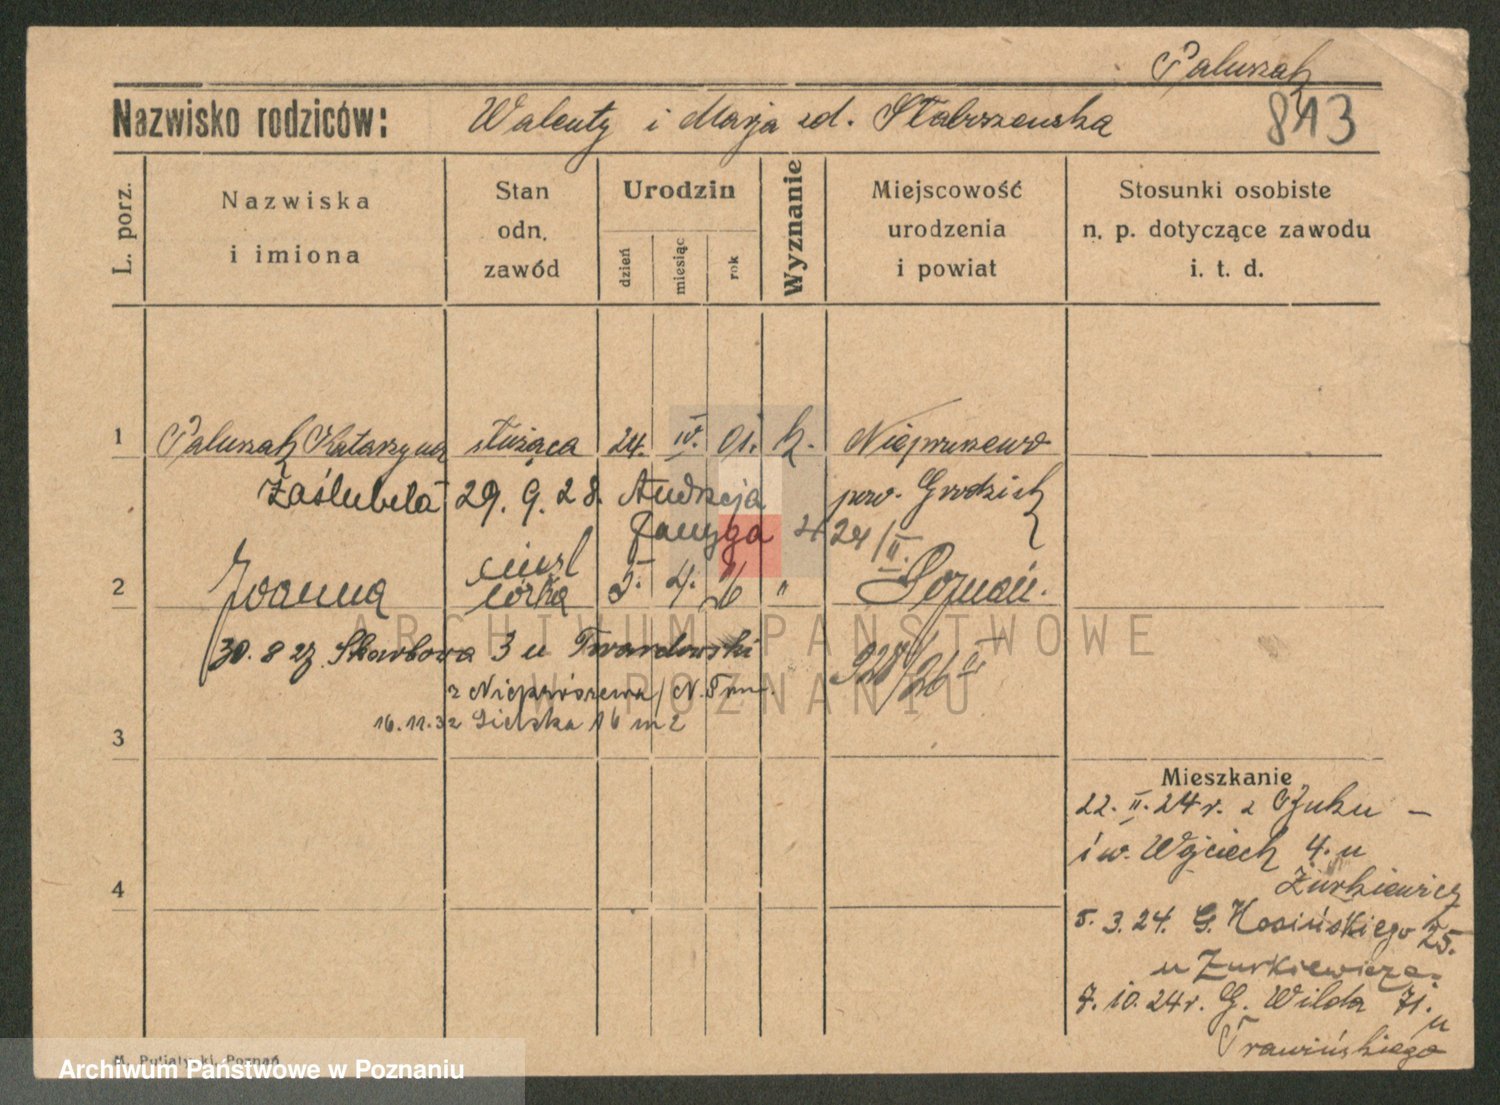 Paluszak
Nazwisko rodziców: Walenty i Marja zd. Stabrzewska
813
L. porz.
Nazwiska
i imiona
Stan
odn.
zawód
Urodzin
dzień
miesiąc
rok
Wyznanie
Miejscowość
urodzenia
i powiat
Stosunki osobiste
n. p. dotyczące zawodu
i. t. d.
1 Paluszak Katarzyna służąca 24. IV. 01. k. Niepruszewo
Zaślubiła 29. 9. 28. Andrzeja pow. Grodzisk
24/II.
2 Joanna córka 5. 4. 26 " Poznań.
30. 8 27 Skarbowa 3 u Twardowski
z Niepruszewa / N. Tom.
928/26
16.11.32 16 m 2
3
Mieszkanie
22. II. 24 r. z Buku –
św. Wojciech 4. u
Żurkiewicz
4
5. 3. 24. G. Kosińskiego 25.
u Żurkiewicza.
7. 10. 24 r. G. Wilda 71.
u
Trawińskiego
ARCHIWUM PAŃSTWOWE
W POZNANIU
Poznań
Archiwum Państwowe w Poznaniu